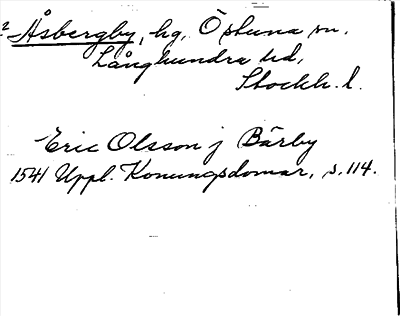 ? Åsbergby, hg, Östuna sn.
Långhundra hd,
Stockh. l.
Eric Olsson j Bärby
1541 Uppl. Konungsdomar, s. 114.